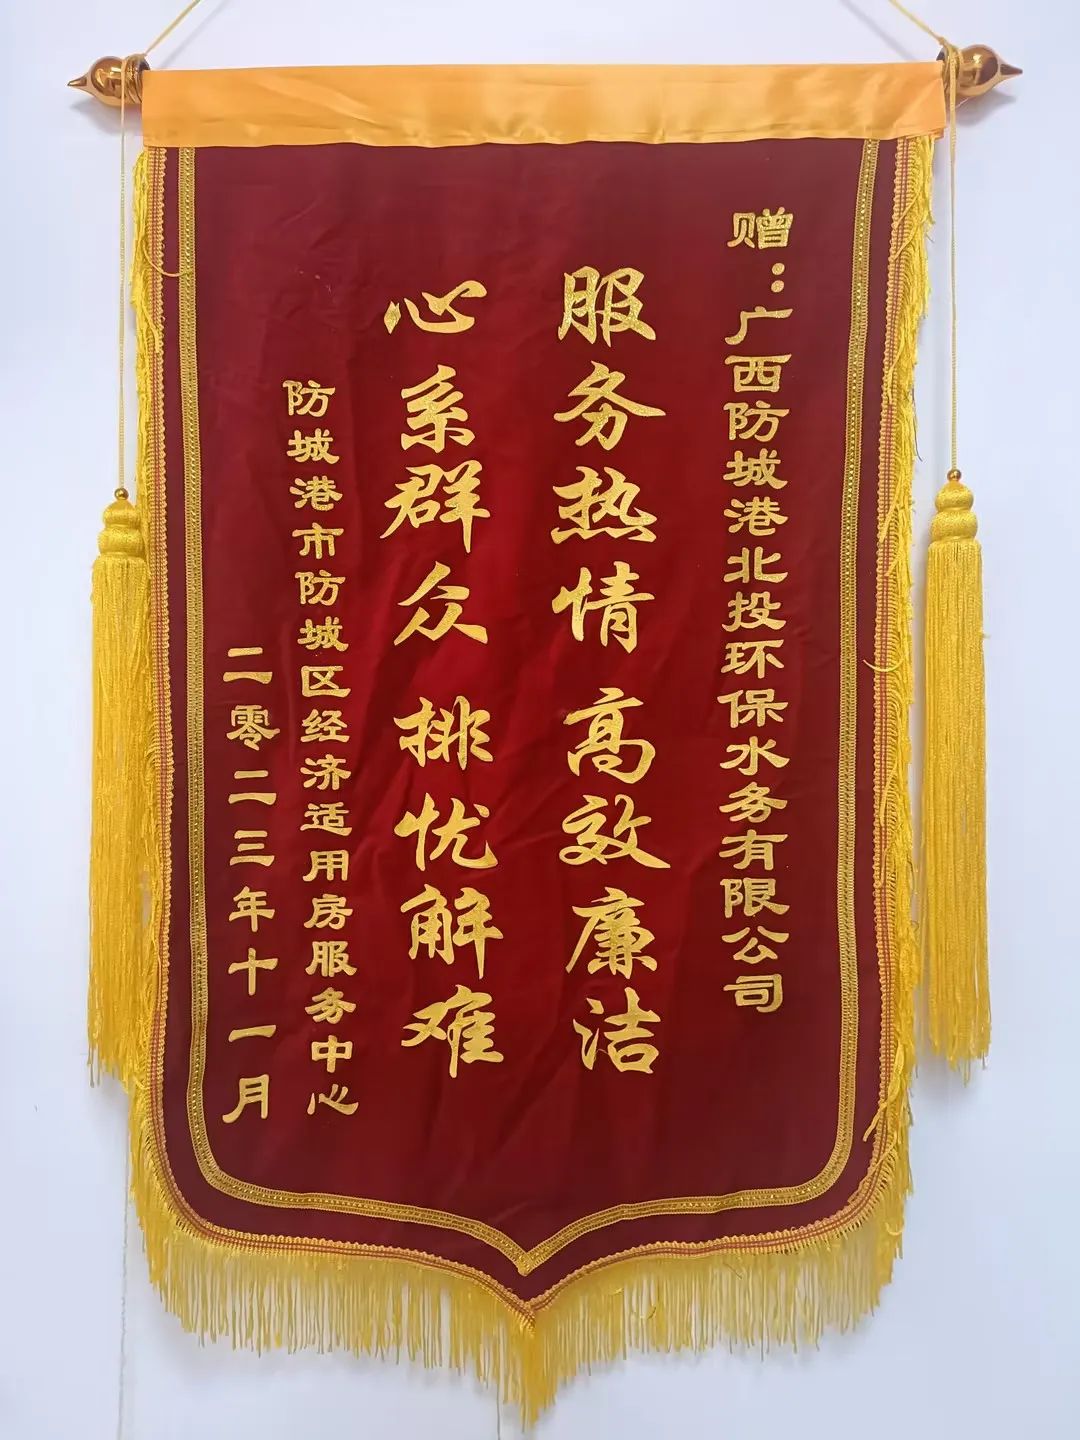 赠：广西防城港北投环保水务有限公司
服务热情 高效廉洁
心系群众 排忧解难
防城港市防城区经济适用房服务中心
二零二三年十一月